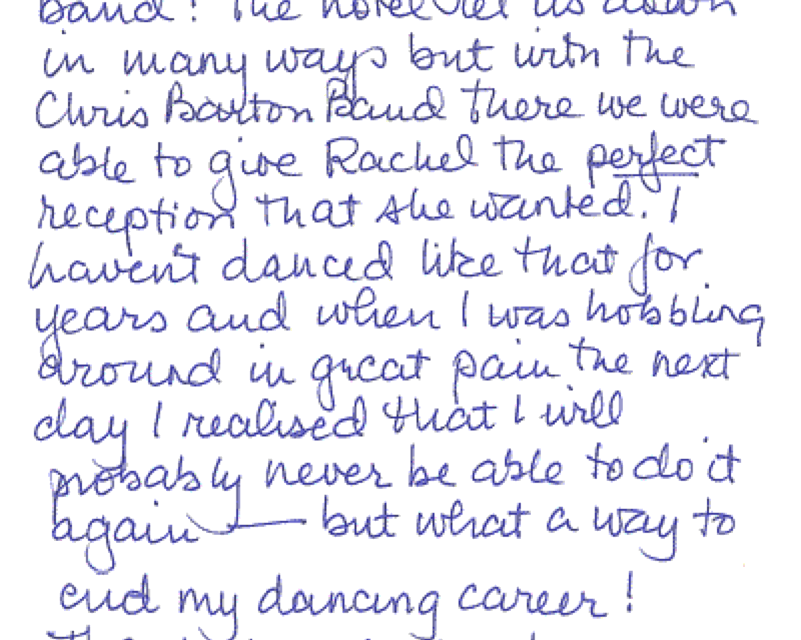 band! The hotel let us down
in many ways but with the
Chris Barton Band there we were
able to give Rachel the perfect
reception that she wanted. I
haven't danced like that for
years and when I was hobbling
around in great pain the next
day I realised that I will
probably never be able to do it
again — but what a way to
end my dancing career!